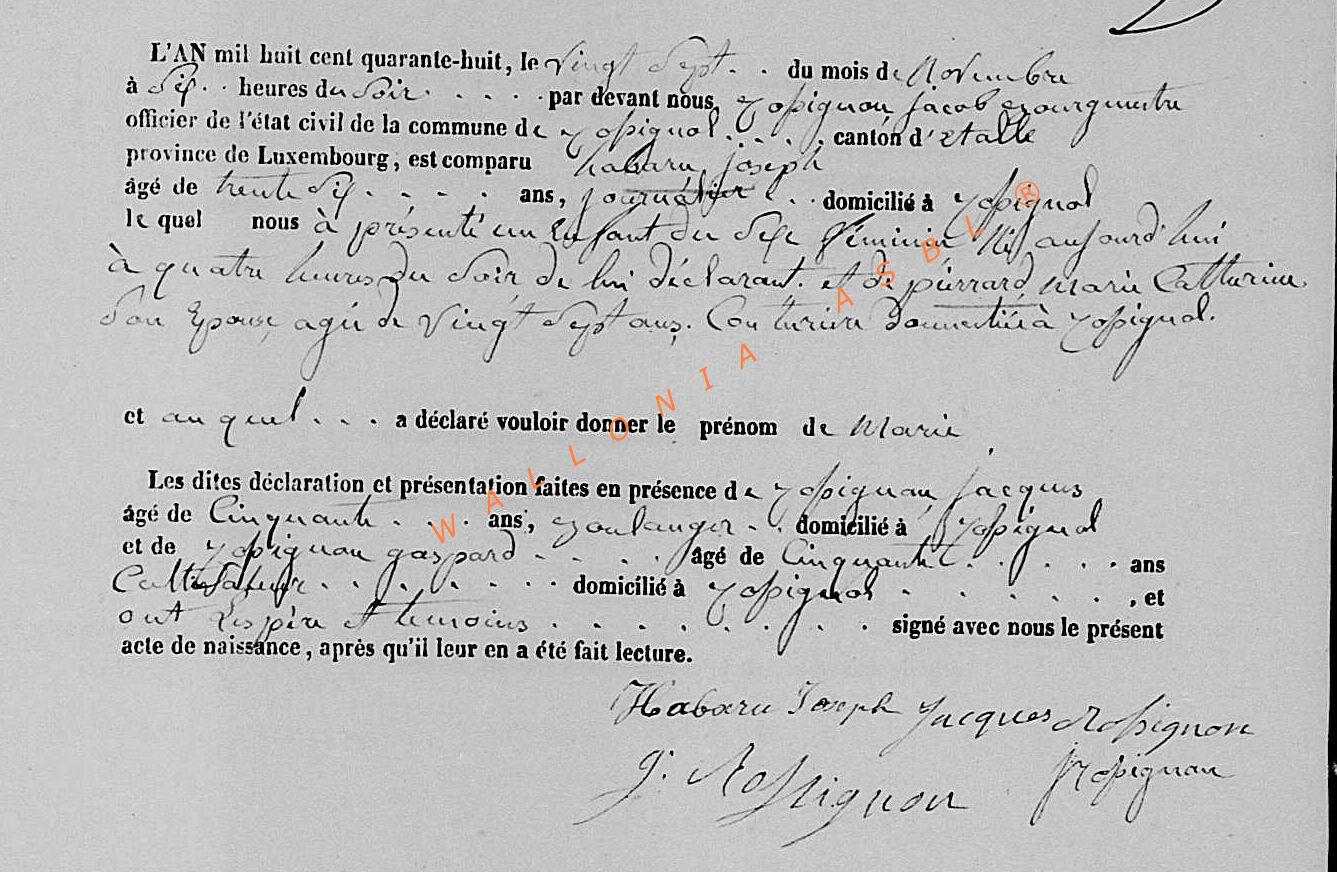 L'AN mil huit cent quarante-huit, le vingt sept . . du mois de Novembre
à Six . . heures du Soir . . . . . par devant nous, rossignon jacob bourgmestre
officier de l'état civil de la commune de rossignol . . . . . canton d'etalle
province de Luxembourg, est comparu habaru joseph
âgé de trente six . . . . ans, journalier . . . domicilié à rossignol
le quel nous à présenté un Enfant du Sexe féminin Né aujourd'hui
à quatre heures du Soir de lui déclarant. et de pierrard marie Catherine,
Son Epouse, agée de vingt Sept ans, Couturière domiciliée à rossignol.
et au quel . . . a déclaré vouloir donner le prénom de Marie
Les dites déclaration et présentation faites en présence de rossignon jacques
âgé de Cinquante . . . ans, boulanger . . domicilié à rossignol
et de rossignon gaspard . . . . âgé de Cinquante . . . . . ans
Cultivateur . . . . . . . domicilié à rossignol . . . . . . , et
ont Les père et temoins . . . . . . . . signé avec nous le présent
acte de naissance, après qu'il leur en a été fait lecture.
Habaru Joseph Jacques Rossignon
g. Rossignon J Rossignon
WALLONIA ASBL ®